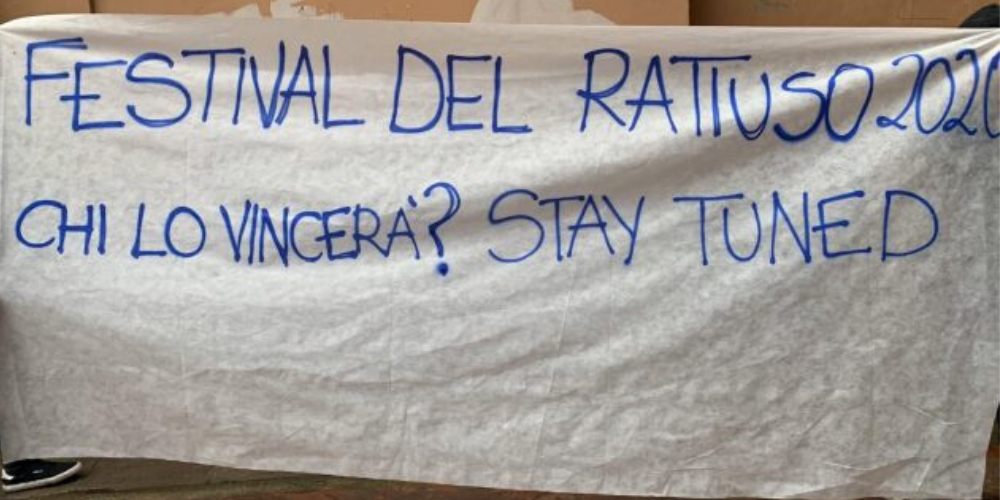 FESTIVAL DEL RATTUSO 2020
CHI LO VINCERÀ? STAY TUNED